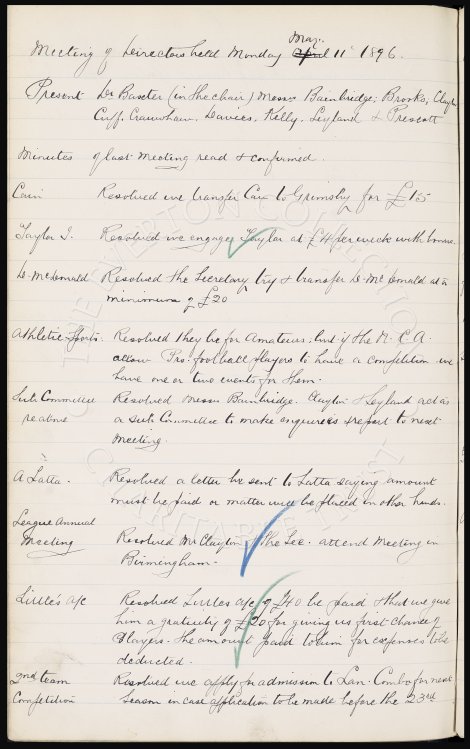 May.
Meeting of Directors held Monday April 11 1896.
Present Dr Baxter (in the chair) Messrs Bainbridge, Brooks, Clayton
Cuff, Crawshaw, Davies, Kelly, Leyland & Prescott
Minutes of last Meeting read & confirmed.
Cain Resolved we transfer Cain to Grimsby for £15
Taylor J. Resolved we engage Taylor at £4 per week with bonus.
Dr McDonald Resolved the Secretary try & transfer Dr McDonald at a
minimum of £20
Athletic Sports. Resolved they be for Amateurs, but if the N.C.A.
allow Pro. football players to have a competition we
have one or two events for them.
Sub Committee Resolved Messrs Bainbridge, Clayton & Leyland act as
a Sub Committee to make enquiries & report to next
Meeting.
A Latta. Resolved a letter be sent to Latta saying amount
must be paid or matter will be placed in other hands.
League Annual
Meeting Resolved Mr Clayton & the Sec. attend Meeting in
Birmingham.
Little's a/c Resolved Littles a/c of £40 be paid & that we give
him a gratuity of £20 for giving us first chance of
Players. The amount paid to him for expenses to be
deducted.
2nd team Resolved we apply for admission to Lan. Combo for next
Competition Season in case application to be made before the 23rd
THE EVERTON COLLECTION
CHARITABLE TRUST